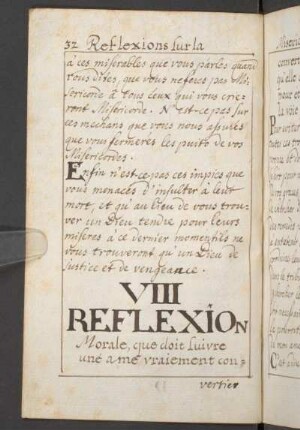 32 Reflexions sur la
à ces miserables que vous parles quand
vous dites, que vous ne feres pas Mi,
sericorde à tous ceux qui vous crie,
ront Misericorde. N'est-ce pas sur
ces mechans que vous nous assurés
que vous fermeres les puits de vos
Misericordes.
Enfin n'est-ce pas ces impies que
vous menacés d'insulter à leur
mort, et qu'au lieu de vous trou,
ver un Dieu tendre pour leurs
miseres à ce dernier moment ils ne
vous trouveront qu'un Dieu de
Justice et de vengeance.
VIII
REFLEXION
Morale, que doit suivre
une ame vraiment con,
vertier